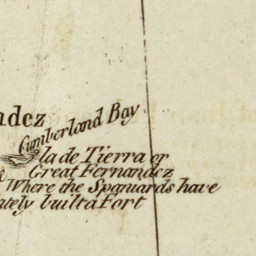 ndez
Cumberland Bay
la de Tierra or
Great Fernandez
Where the Spaniards have
ately built a Fort